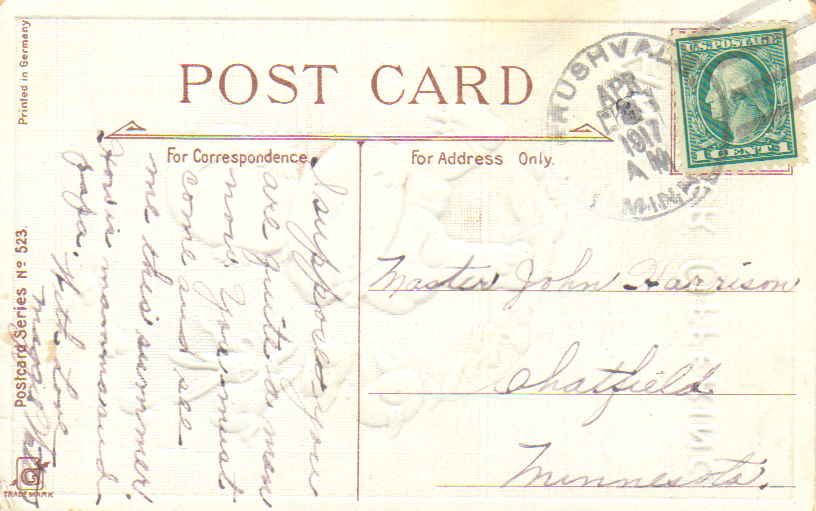 Printed in Germany
POST CARD
For Correspondence.
For Address Only.
U.S. POSTAGE
1 CENT 1
RUSHVA
APR
1917
A M
MINN
I suppose you
are quite a man
now. You must
come and see
me this summer.
How is mamma and
papa.
With Love
Master John Harrison
Chatfield
Minnesota.
Postcard Series No 523.
TRADE MARK